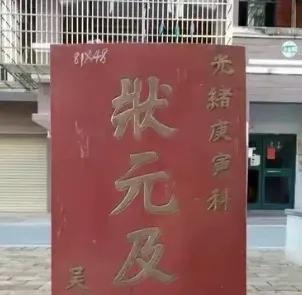 81×48
光緒庚寅科
狀元及
吴